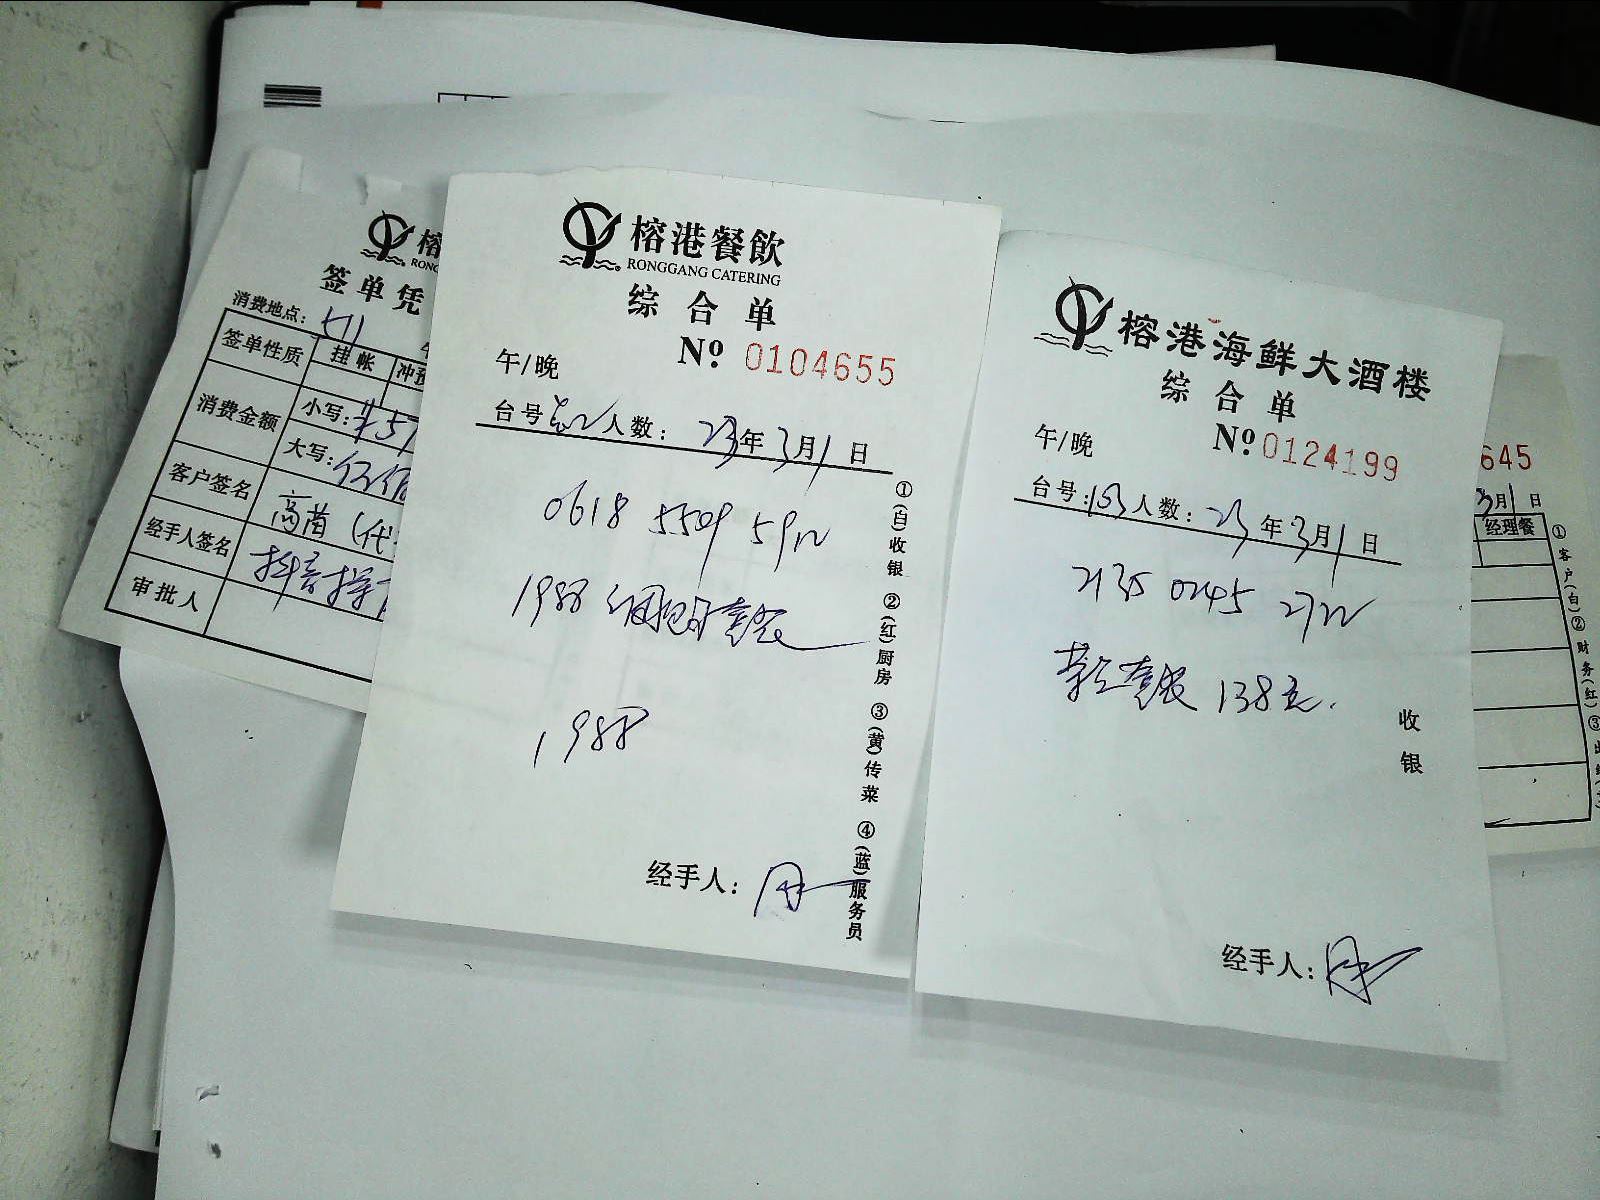 榕
RONG
签单凭
消费地点:
签单性质 挂帐 冲预
消费金额 小写: ¥57
大写:
客户签名 高苗(代
经手人签名 抖音
审批人
榕港餐飲
RONGGANG CATERING
综合单
午/晚 Nº 0104655
台号 人数: 23年3月1日
0618 5509 59
1988 套餐
1988
经手人:
①(白)收银 ②(红)厨房 ③(黄)传菜 ④(蓝)服务员
榕港海鲜大酒楼
综合单
午/晚 Nº 0124199
台号: 人数: 23年3月1日
2135 0245 27
套餐 138元.
收银
经手人:
645
3月1日
经理餐
①客户(白)②财务(红)③